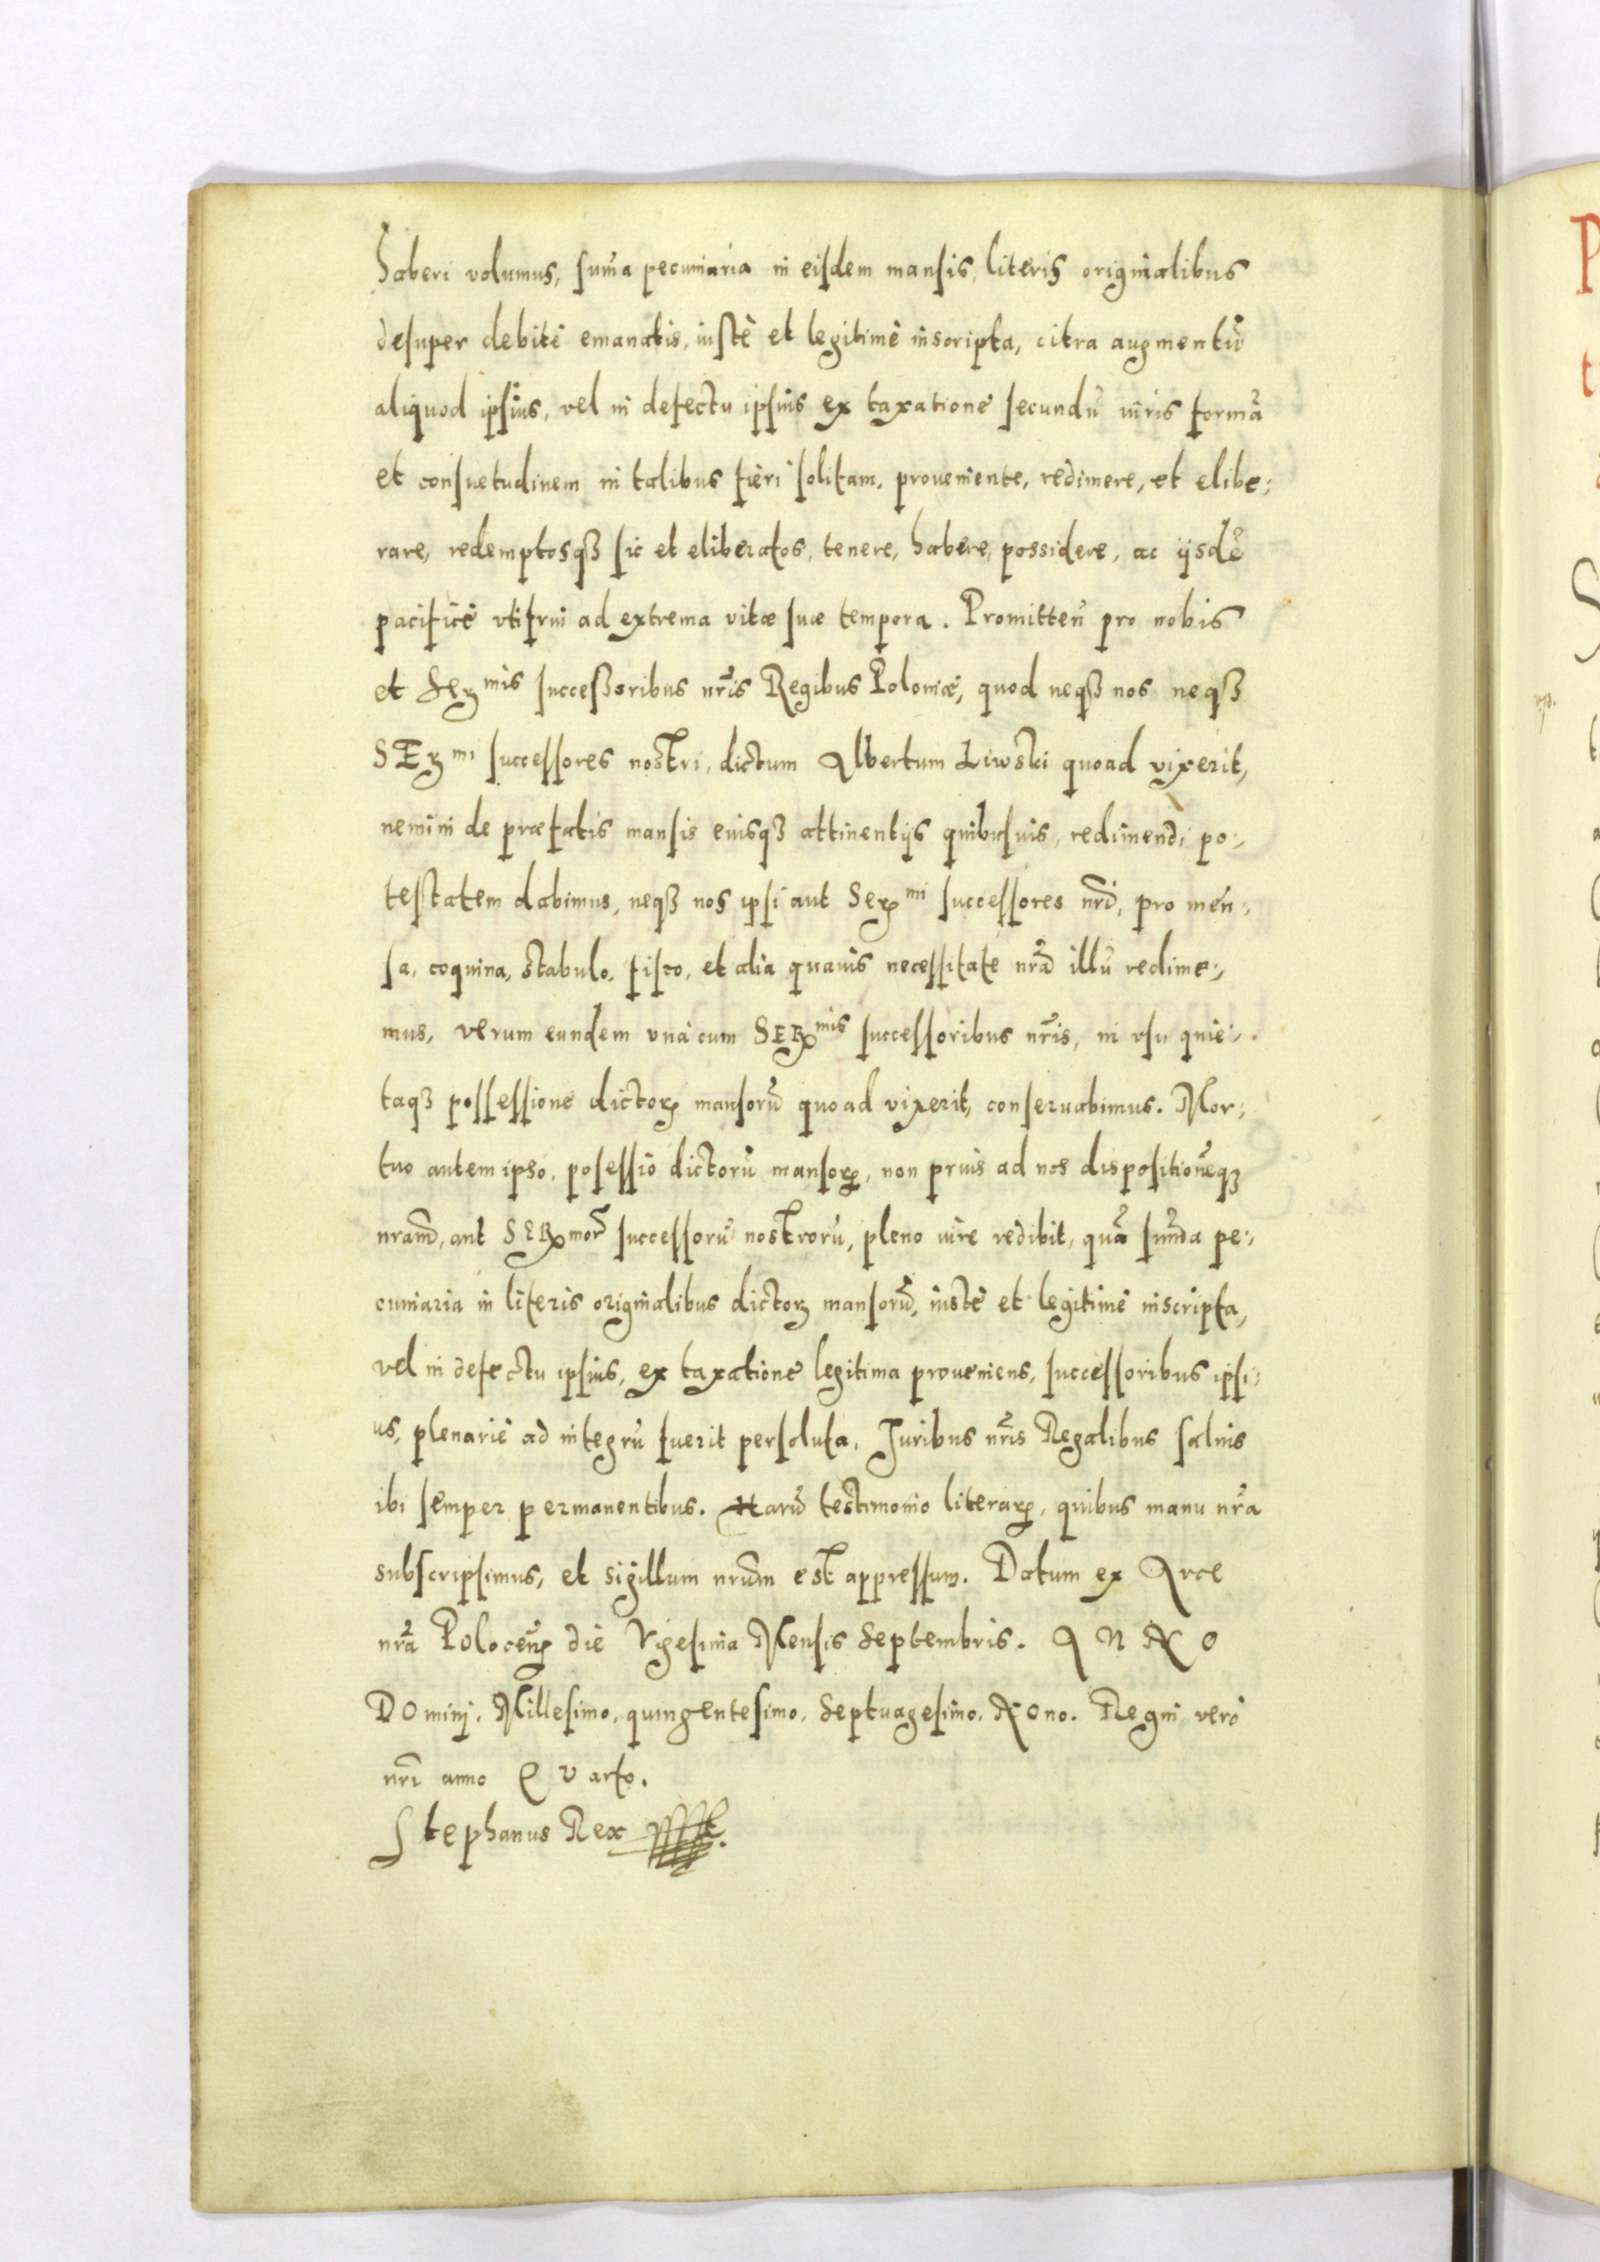 haberi volumus, sum̃a pecuniaria in eisdem mansis, literis originalibus
desuper debitè emanatis, iustè et legitimè inscripta, citra augmentũ
aliquod ipsius, vel in defectu ipsius ex taxatione secundũ iuris formã
et consuetudinem in talibus fieri solitam, proueniente, redimere, et elibe;
rare, redemptosqꝫ sic et eliberatos, tenere, habere, possidere, ac ijsdẽ
pacificè vtifrui ad extrema vitæ suæ tempora. Promitteñ pro nobis
et Serꝫmis successoribus nr̃is Regibus Poloniæ, quod neqꝫ nos neqꝫ
SErꝫmi successores nostri, dictum Albertum Liwski quoad vixerit,
nemini de præfatis mansis eiusqꝫ attinentijs quibusuis, redimendi po;
testatem dabimus, neqꝫ nos ipsi aut Serꝫmi successores nr̃i, pro men;
sa, coquina, stabulo, fisco, et alia quauis necessitate nr̃a illũ redime;
mus, verum eundem vnà cum SERꝫmis successoribus nr̃is, in vsu quie;
taqꝫ possessione dictoꝝ mansorũ quoad vixerit, conseruabimus. Mor;
tuo autem ipso, posessio dictorũ mansoꝝ, non prius ad nos dispositionẽqꝫ
nram̃, aut SERꝫmor̃ successorũ nostrorũ, pleno iure redibit, quã sum̃a pe;
cuniaria in literis originalibus dictoꝝ mansorũ, iustè et legitimè inscripta,
vel in defectu ipsius, ex taxatione legitima proueniens, successoribus ipsi;
us, plenariè ad integrũ fuerit persoluta, Juribus nr̃is Regalibus saluis
ibi semper permanentibus. Harũ testimonio literaꝝ, quibus manu nr̃a
subscripsimus, et sigillum nrũm est appressum. Datum ex Arce
nr̃a Poloceñ die Vigesima Mensis Septembris. ANNO
DOminj. Millesimo, quingentesimo, Septuagesimo, NOno. Regni verò
nr̃i anno QVarto.
Stephanus Rex
P
t